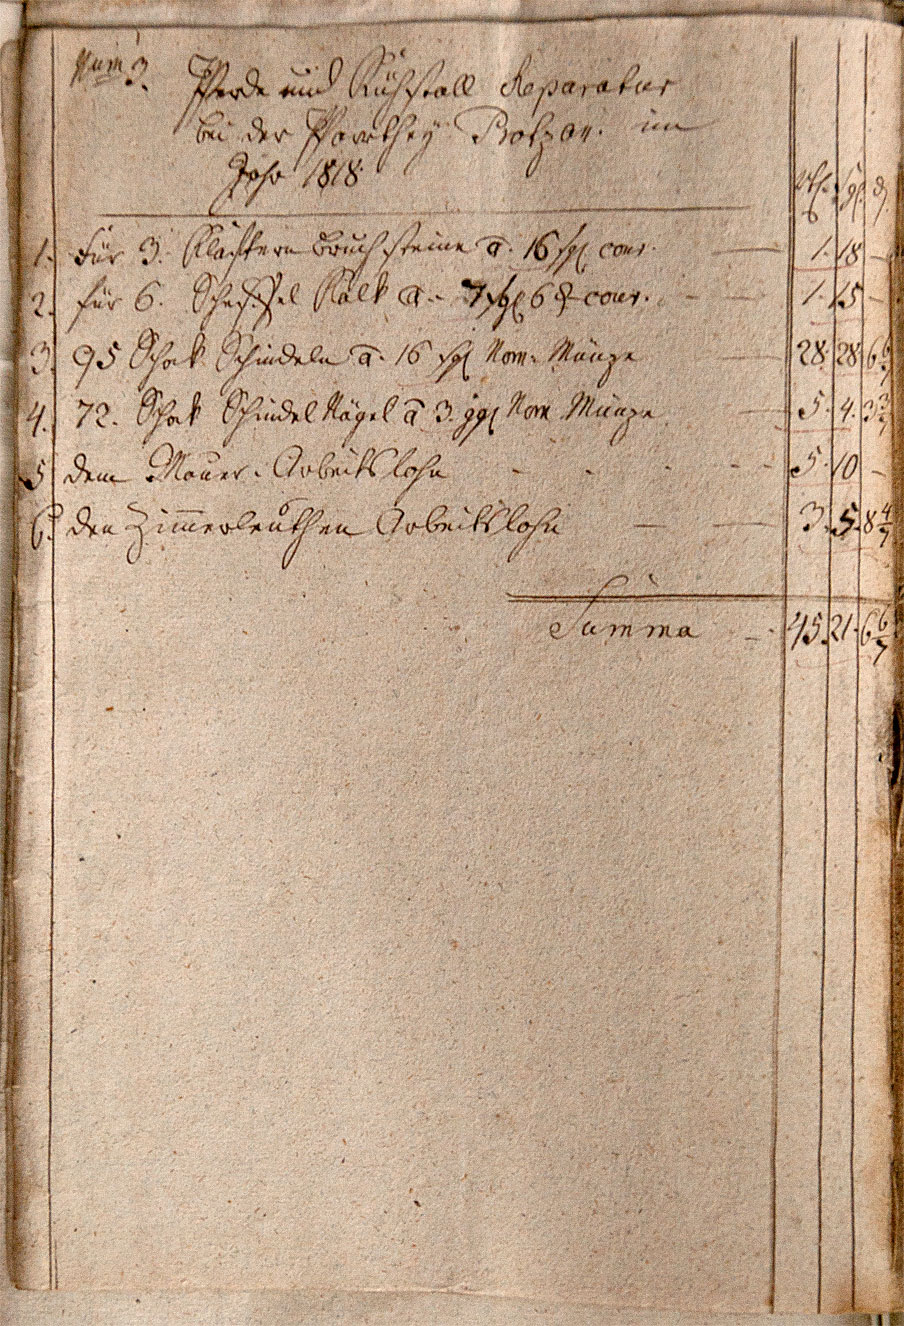 Num 3.
Pferde und Kuhstall Reparatur
bei der Pfarrthey Protzan. im
Jahr 1818
rthl. sgl. d.
1. Für 3. Klaftern Bruchsteine a. 16 sgl cour. — 1. 18 —
2. für 6. Scheffel Kalk a. 7 sgl 6 d cour. - — 1. 15 —
3. 95 Schok Schindeln a. 16 sgl Nom. Münze — 28. 28. 6 6/7
4. 72. Schok Schindel Nägel a 3. ggl Nom Münze — 5. 4. 3 3/7
5 dem Maurer Arbeitslohn - - - - 5. 10 —
6. den Zimmerleuthen Arbeitslohn — — 3. 5. 8 4/7
Summa - 45. 21. 6 6/7